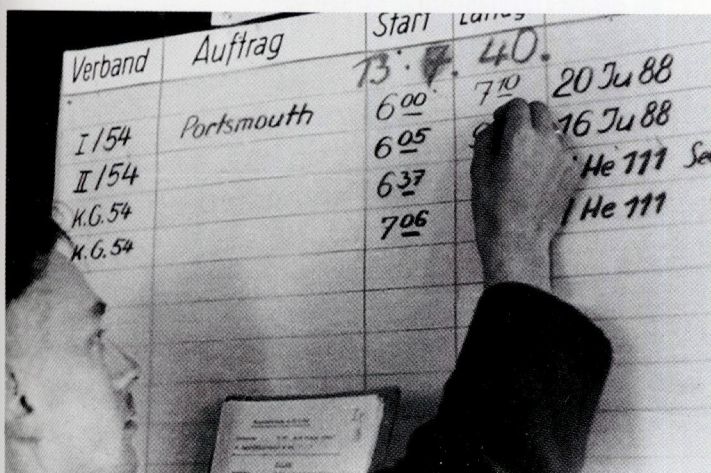 Verband Auftrag Start Landg
13. 7. 40.
I/54 Portsmouth 6 00 7 10 20 Ju 88
II/54 6 05 16 Ju 88
K.G. 54 6 37 He 111
K.G. 54 7 06 1 He 111